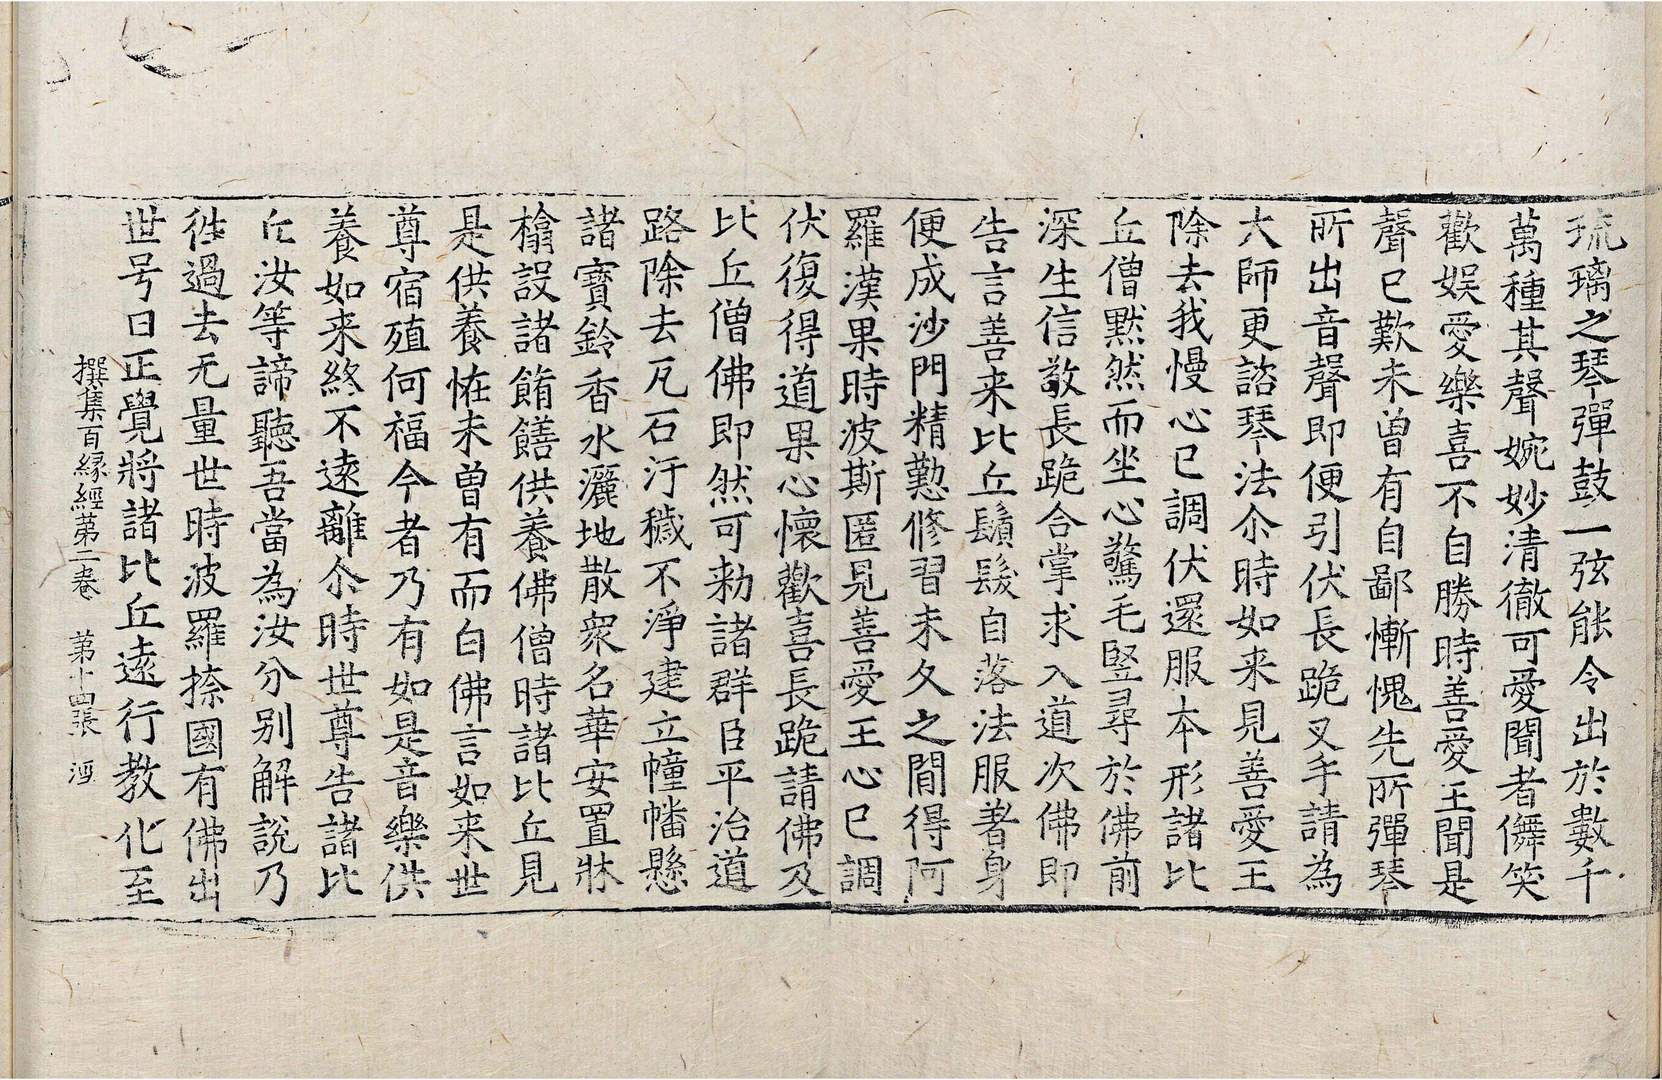 琉璃之琴彈鼓一弦能令出於數千
萬種其聲婉妙清徹可愛聞者儛笑
歡娱愛樂喜不自勝時善愛王聞是
聲已歎未曽有自鄙慚愧先所彈琴
所出音聲即便引伏長跪叉手請為
大師更諮琴法尒時如来見善愛王
除去我慢心已調伏還服本形諸比
丘僧黙然而坐心驚毛竪尋於佛前
深生信敬長跪合掌求入道次佛即
告言善来比丘鬚髮自落法服著身
便成沙門精懃修習未久之閒得阿
羅漢果時波斯匿見善愛王心已調
伏復得道果心懷歡喜長跪請佛及
比丘僧佛即然可勑諸群臣平治道
路除去瓦石汙穢不淨建立幢幡懸
諸寶鈴香水灑地散衆名華安置牀
榻設諸餚饍供養佛僧時諸比丘見
是供養恠未曽有而白佛言如来世
尊宿殖何福今者乃有如是音樂供
養如来終不遠離尒時世尊告諸比
丘汝等諦聽吾當為汝分別解說乃
徃過去无量世時波羅捺國有佛出
世号曰正覺將諸比丘遠行教化至
撰集百縁經苐二卷 苐十四張 㳷